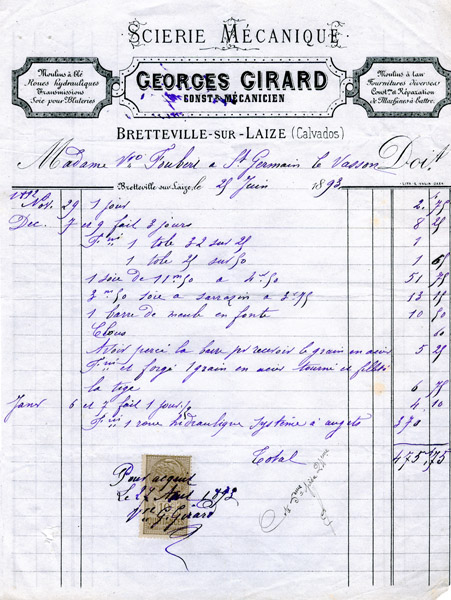 SCIERIE MÉCANIQUE
Moulins à blé
Roues hydrauliques
Transmissions
Soie pour Bluteries
GEORGES GIRARD
CONST. MÉCANICIEN
Moulins à tan
Fournitures Diverses
Const.on Réparation
de Machines à battre.
BRETTEVILLE-SUR-LAIZE (Calvados)
Madame Vve Foubert a St Germain le Vasson Doit
Bretteville-sur-Laize, le 25 Juin 1893
1892
Nov. 29 1 jour 2 75
Dec. 7 et 9 fait 3 jours 8 25
1 tole 32 sur 25 1
1 tole 25 sur 50 1 65
1 soie de 11m50 a 4.50 51 75
3m50 soie a sarrazin a 3.75 13 15
1 barre de meule en fonte 10 50
Clous 60
Avoir percé la barre pr recevoir le grain en acier 5 25
et forgé 1 grain en acier tourné et fileté
la tige 6 75
Janv 6 et 7 fait 1 jour ½ 4 10
1 roue hidraulique système à augets 370
Total 475,75
Pour acquit
Le 22 1893
G. Girard